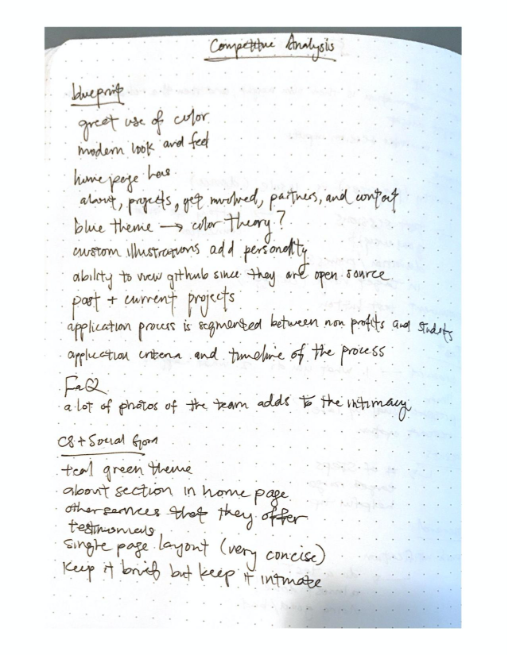 Competitive Analysis
blueprint
great use of color
modern look and feel
home page has
about, projects, get involved, partners, and contact
blue theme → color theory?
custom illustrations add personality
ability to view github since they are open source
past + current projects
application process is segmented between non profits and students
application criteria and timeline of the process
FaQ
a lot of photos of the team adds to the intimacy
CS + Social Good
teal green theme
about section in home page
other services that they offer
testimonials
single page layout (very concise)
keep it brief but keep it intimate